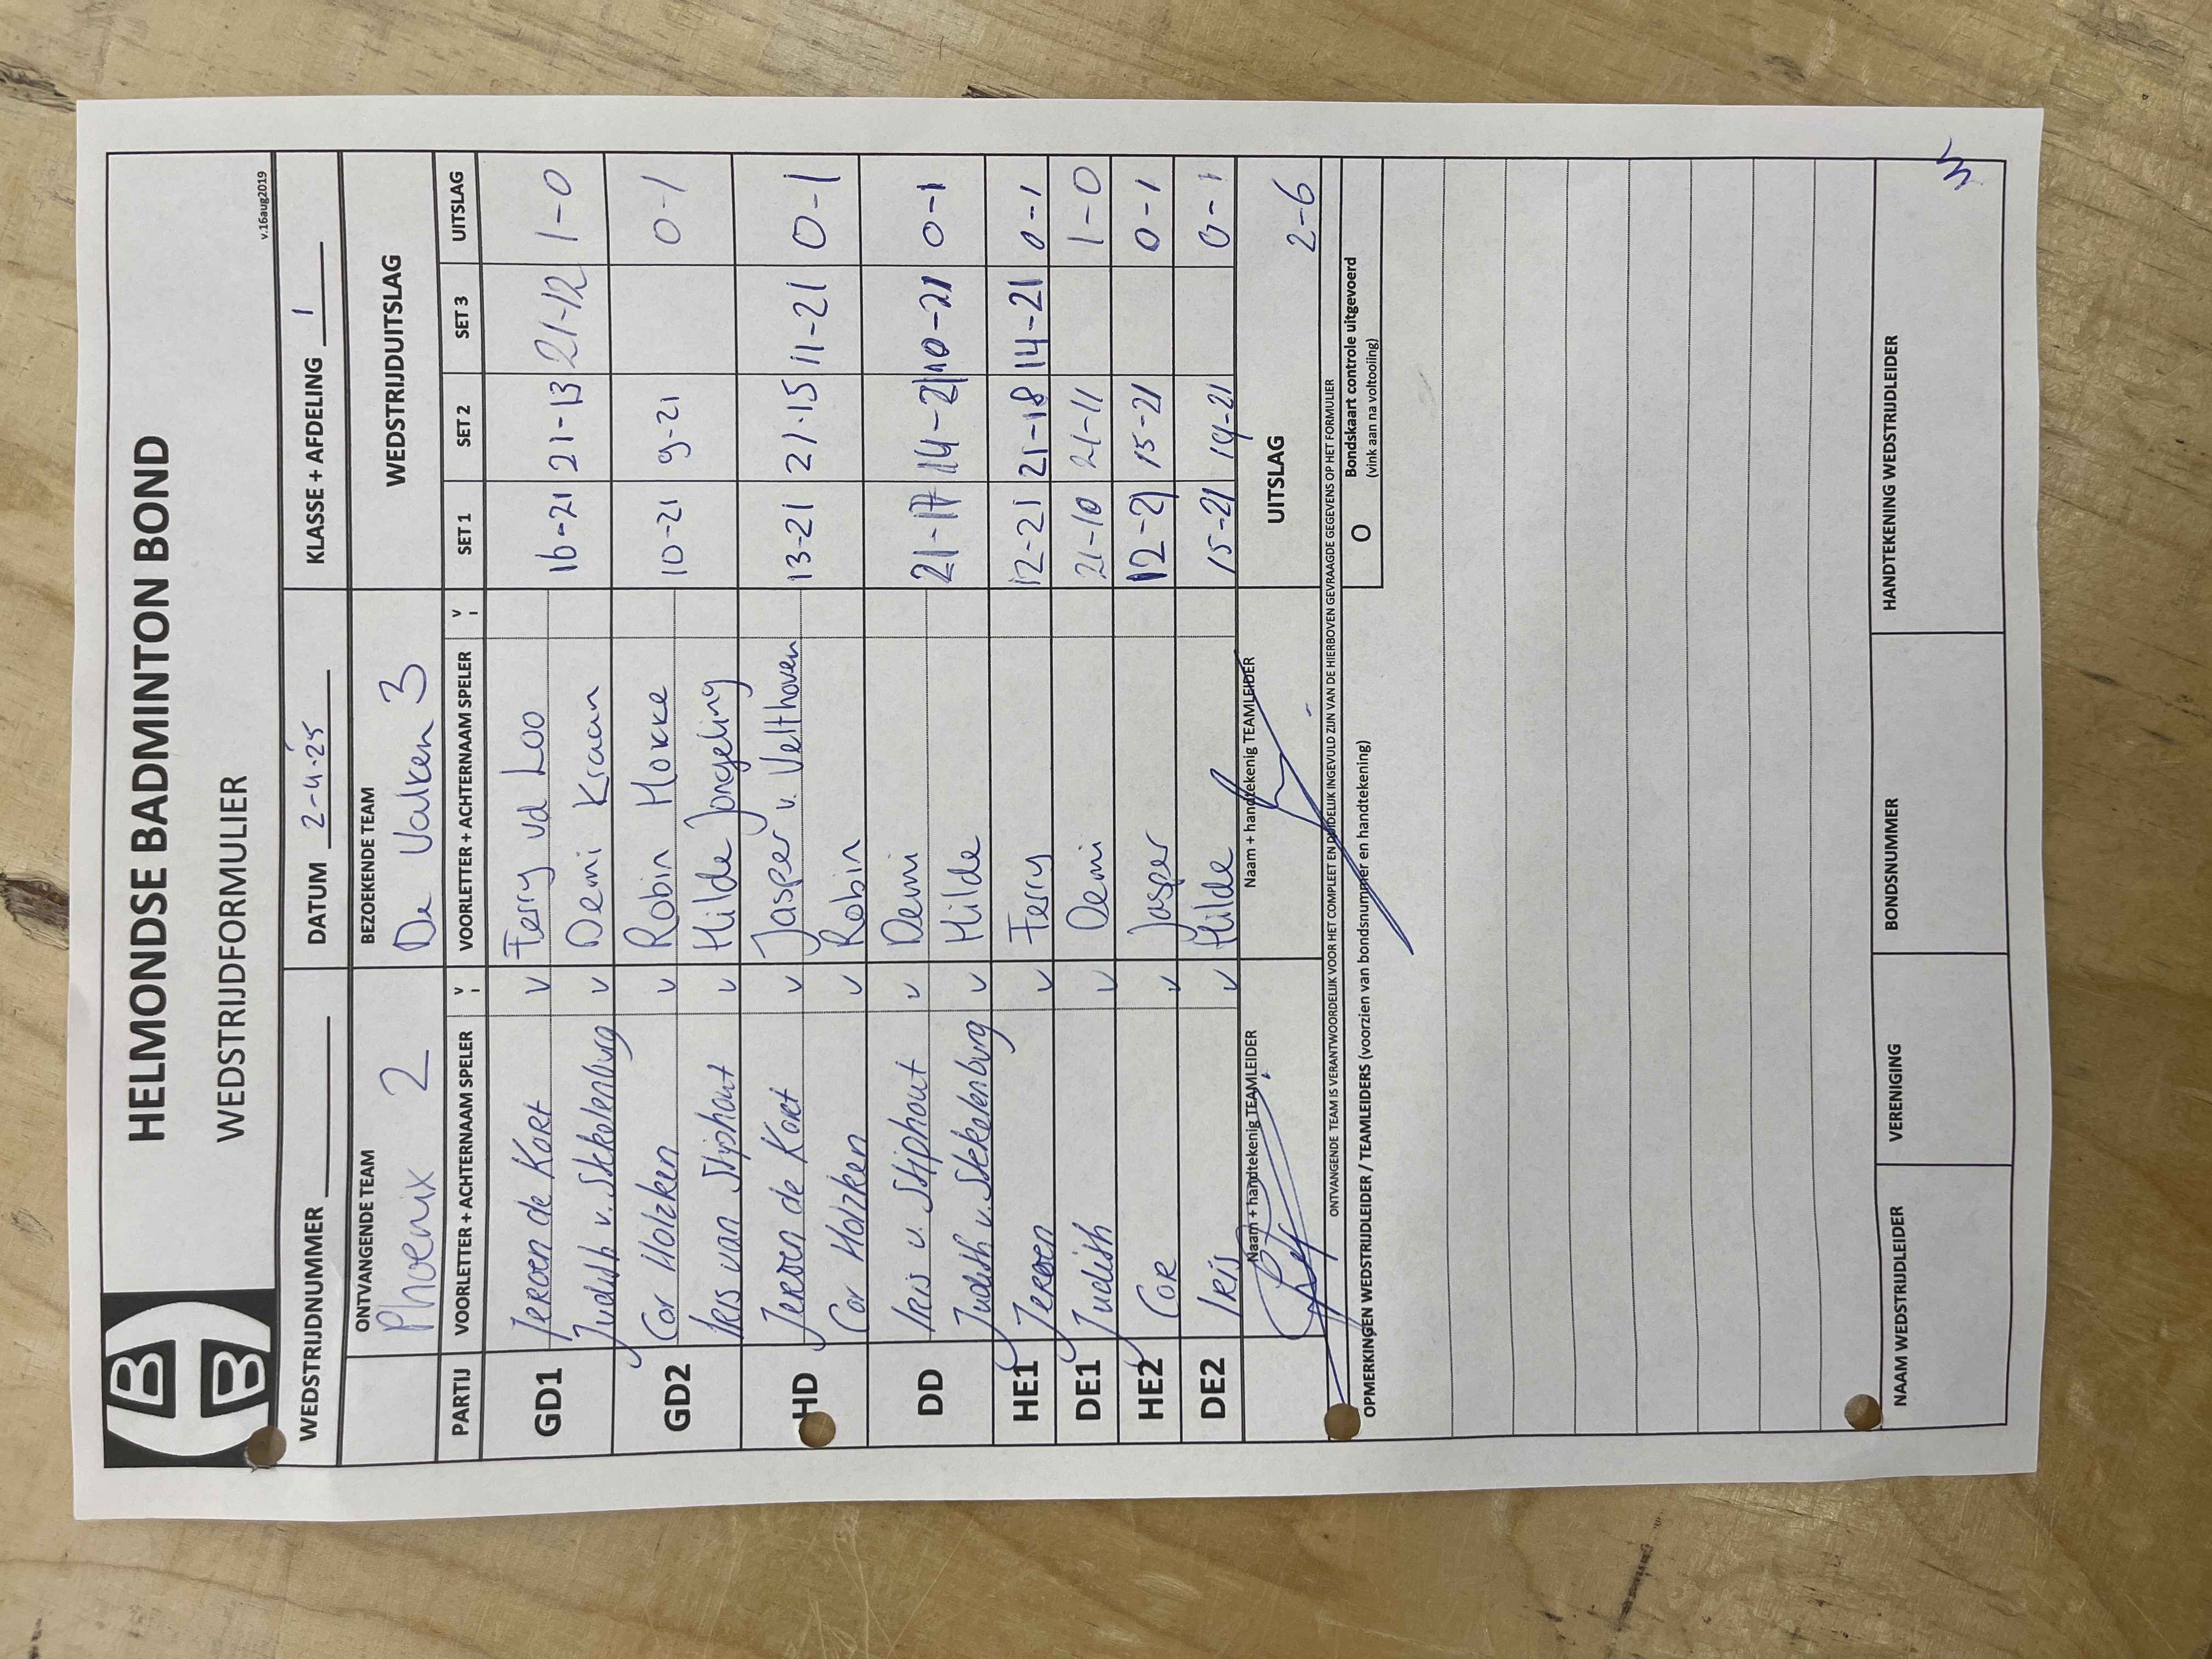 HELMONDSE BADMINTON BOND
WEDSTRIJDFORMULIER
v.16aug2019
WEDSTRIJDNUMMER DATUM 2-4-25 KLASSE + AFDELING 1
ONTVANGENDE TEAM BEZOEKENDE TEAM WEDSTRIJDUITSLAG
Phoenix 2 De Valken 3
PARTIJ VOORLETTER + ACHTERNAAM SPELER V VOORLETTER + ACHTERNAAM SPELER V SET 1 SET 2 SET 3 UITSLAG
GD1 Jeroen de Kort v Ferry vd Loo 16-21 21-13 21-12 1-0
Judith v. Stekelenburg v Demi Kraan
GD2 Cor Holzken v Robin Mokke 10-21 9-21 0-1
Iris van Stiphout v Hilde Jongeling
HD Jeroen de Kort v Jasper v. Velthoven 13-21 21-15 11-21 0-1
Cor Holzken v Robin
DD Iris v. Stiphout v Demi 21-17 14-21 10-21 0-1
Judith v. Stekelenburg v Hilde
HE1 Jeroen v Ferry 12-21 21-18 14-21 0-1
DE1 Judith v Demi 21-10 21-11 1-0
HE2 Cor v Jasper 12-21 15-21 0-1
DE2 Iris v Hilde 15-21 14-21 0-1
Naam + handtekenig TEAMLEIDER Naam + handtekenig TEAMLEIDER UITSLAG 2-6
ONTVANGENDE TEAM IS VERANTWOORDELIJK VOOR HET COMPLEET EN DUIDELIJK INGEVULD ZIJN VAN DE HIERBOVEN GEVRAAGDE GEGEVENS OP HET FORMULIER
OPMERKINGEN WEDSTRIJDLEIDER / TEAMLEIDERS (voorzien van bondsnummer en handtekening) O Bondskaart controle uitgevoerd
(vink aan na voltooiing)
NAAM WEDSTRIJDLEIDER VERENIGING BONDSNUMMER HANDTEKENING WEDSTRIJDLEIDER